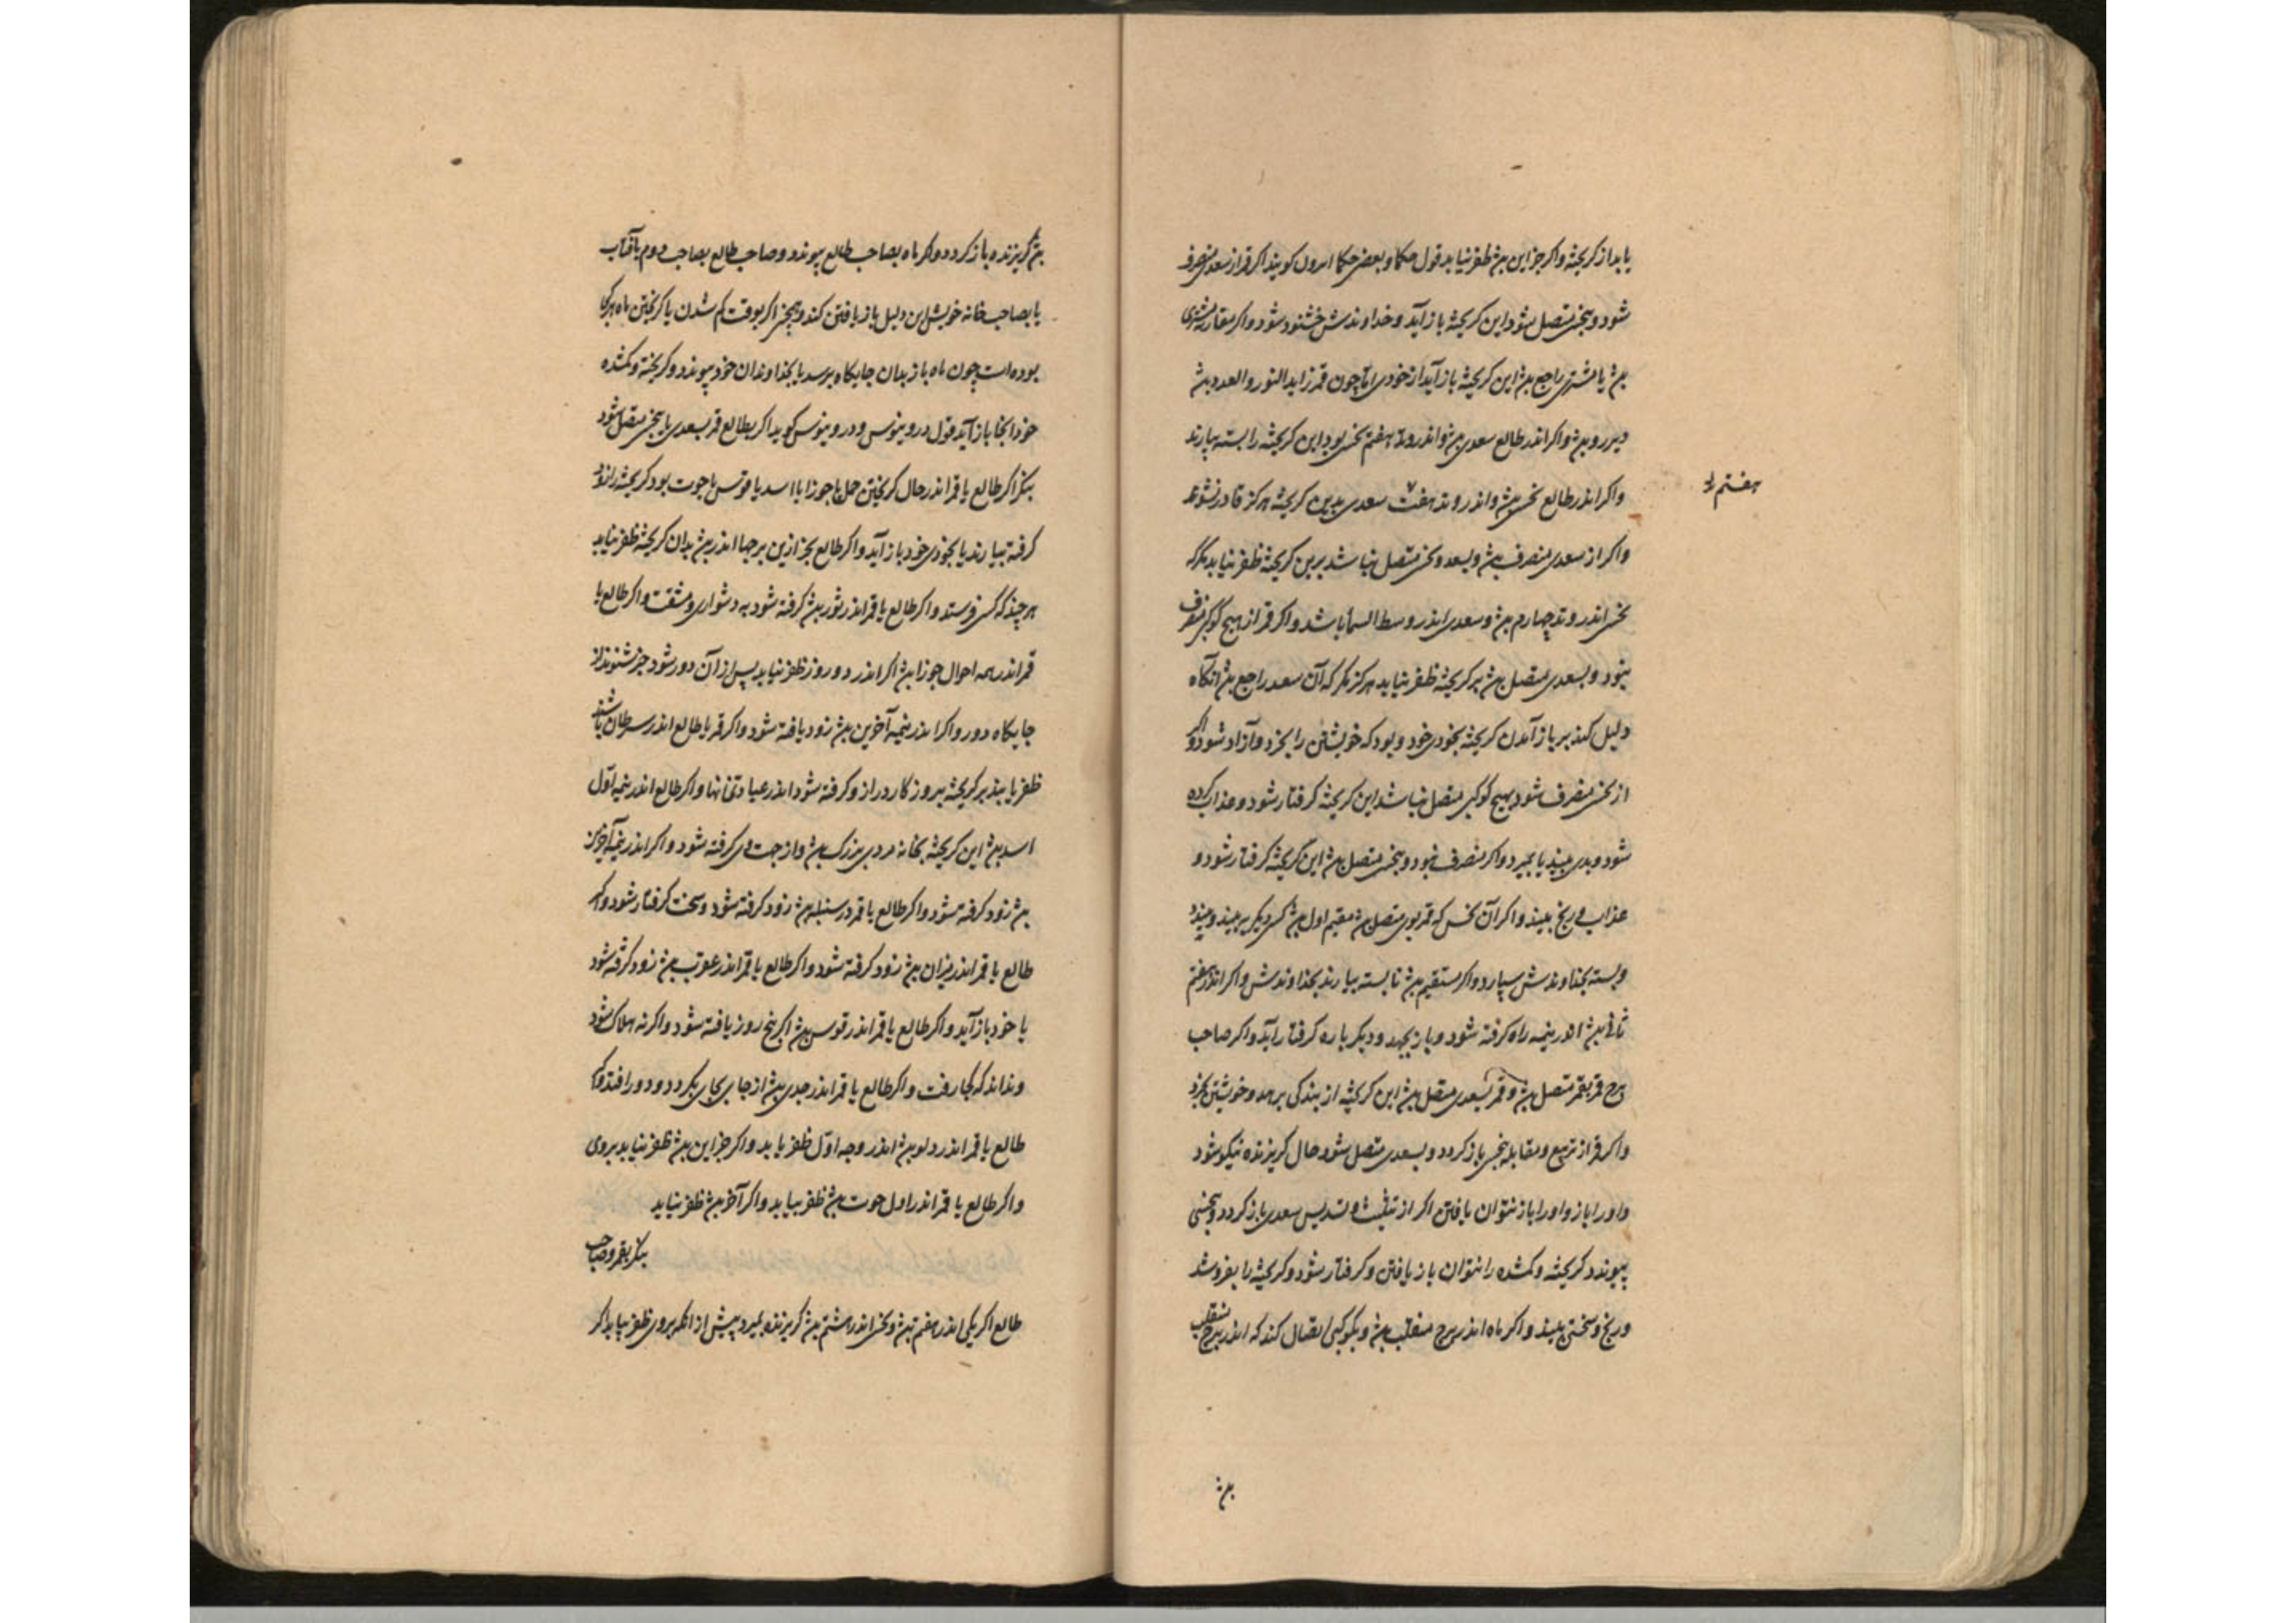 یابد از کریخته واکر جز این بشد ظفر نیابد قول حکما و بعضی حکما ایدون کویند اکر قمر از سعد منصرف
شود و بنحس متصل شود این کریخته باز آید و خداوندش خشنود شود واکر مقارنه مشتری
بشد یا مشتری راجع بشد این کریخته باز آید از خودی اما چون قمر زاید النور والعدد بشد
دیر رو بشد واکر اندر طالع سعدی بشد واندر وتد هفتم نحس بود این کریخته را بسته بیارند
واکر اندر طالع نحس بشد واندر وتد هفت سعدی بدین کریخته هرکز قادر نشوند
هفتم
واکر از سعدی منصرف بشد وبسعد ونحس متصل نباشد برین کریخته ظفر نیابد مکر که
نحس اندر وتد چهارم بشد وسعدی اندر وسط السما باشد واکر قمر از هیچ کوکبی منصرف
نبود وبسعدی متصل بشد بر کریخته ظفر نیابد هرکز مکر که آن سعد راجع بشد آنکاه
دلیل کند بر باز آمدن کریخته بخودی خود وبود که خویشتن را بخرد وآزاد شود واکر
از نحس منصرف شود بهیچ کوکبی متصل نباشد این کریخته کرفتار شود وعذاب کرده
شود وبدی بیند یا بمیرد واکر منصرف نبود وبنحس متصل بشد این کریخته کرفتار شود و
عذاب ورنج بیند واکر آن نحس که قمر بوی متصل بشد مقیم اول بشد کسی دیکر بیند
وبسته بخداوندش سپارد واکر مستقیم بشد تا بسته بیارند بخداوندش واکر اندر مقیم
ثانی بشد اندر نیمه راه کرفته شود وباز بجهد ودیکر باره کرفتار آید واکر صاحب
برج قمر بقمر متصل بشد وقمر بسعدی متصل بشد این کریخته از بندکی برهد وخویشتن بخرد
واکر قمر از تربیع ومقابله نحس باز کردد وبسعدی متصل شود حال کریزنده نیکو شود
واو را باز واو را باز نتوان یافتن اکر از تثلیث وتسدیس سعدی باز کردد وبنحسی
پیوندد کریخته وکمشده را بتوان باز یافتن وکرفتار شود وکریخته را بفروشد
ورنج وسختی بیند واکر ماه اندر برج منقلب بشد وبکوکبی اتصال کند که اندر برج منقلب
بشد
بشد کریزنده باز کردد واکر ماه بصاحب طالع پیوندد وصاحب طالع بصاحب دوم یا آفتاب
یا بصاحب خانه خویش این دلیل باز یافتن کند وهمچنین اکر بوقت کم شدن یا کریختن ماه هرکجا
بوده است چون ماه باز بدان جایکاه برسد یا بخداوندان خود پیوندد وکریخته وکمشده
خود آنجا باز آید قول دروینوس ودروینوس کوید اکر بطالع قمر بسعدی یا بنحس متصل شود
بنکر اکر طالع یا قمر اندر حال کریختن حمل یا جوزا یا اسد یا قوس یا حوت بود کریخته را زود
کرفته بیارند یا بخودی خود باز آید واکر طالع بجز ازین برجها اندر بشد بدان کریخته ظفر نیابد
هر چند که کس فرستد واکر طالع یا قمر اندر ثور بشد کرفته شود به دشواری ومشقت واکر طالع یا
قمر اندر همه احوال جوزا بشد اکر اندر دو روز ظفر نیابد پس از آن دور شود خبر شنوند از
جایکاه دور واکر اندر نیمه آخرین بشد زود یافته شود واکر قمر یا طالع اندر سرطان باشند
ظفر یابند بر کریخته بروزکار دراز وکرفته شود اندر عبادتخانها واکر طالع اندر نیمه اول
اسد بشد این کریخته بخانه مردی بزرک بشد واز جهت وی کرفته شود واکر اندر نیمه آخرین
بشد زود کرفته شود واکر طالع یا قمر در سنبله بشد زود کرفته شود وسخت کرفتار شود واکر
طالع یا قمر اندر میزان بشد زود کرفته شود واکر طالع یا قمر اندر عقرب بشد زود کرفته شود
یا خود باز آید واکر طالع یا قمر اندر قوس بشد اکر پنج روز یافته شود واکر نه هلاک شود
وندانند که کجا رفت واکر طالع یا قمر اندر جدی بشد از جای بجای بکردد ودور افتد واکر
طالع یا قمر اندر دلو بشد اندر وجه اول ظفر یابد واکر جز این بشد ظفر نیابد بروی
واکر طالع یا قمر اندر اول حوت بشد ظفر بیابد واکر آخر بشد ظفر نیابد
بنکر بقمر وصاحب
طالع اکر یکی اندر هفتم بشد ونحس اندر هشتم بشد کریزنده بمیرد پیش از آنکه بروی ظفر بیابد اکر